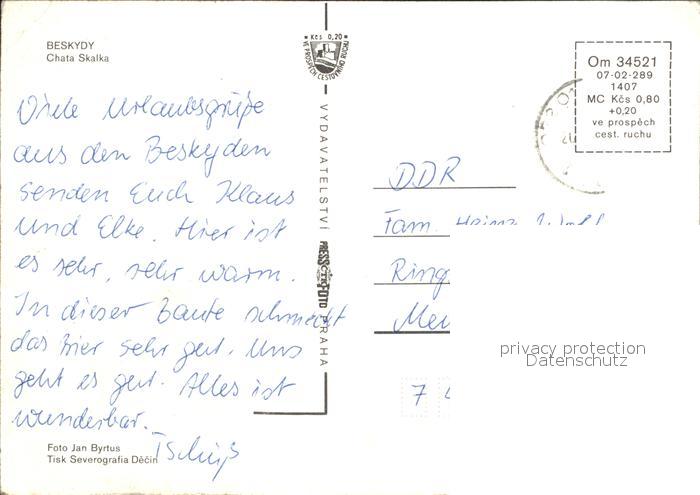 BESKYDY
Chata Skalka
Viele Urlaubsgrüße
aus den Beskyden
senden Euch Klaus
und Elke. Hier ist
es sehr, sehr warm.
In dieser Baute schmeckt
das Bier sehr gut. Uns
geht es gut. Alles ist
wunderbar.
Tschüß
Foto Jan Byrtus
Tisk Severografia Děčín
Kčs 0,20
VE PROSPĚCH CESTOVNÍHO RUCHU
VYDAVATELSTVÍ
PRESSFOTO
PRAHA
Om 34521
07-02-289
1407
MC Kčs 0,80
+0,20
ve prospěch
cest. ruchu
DDR
Fam. Heinz
Ring
7
privacy protection
Datenschutz